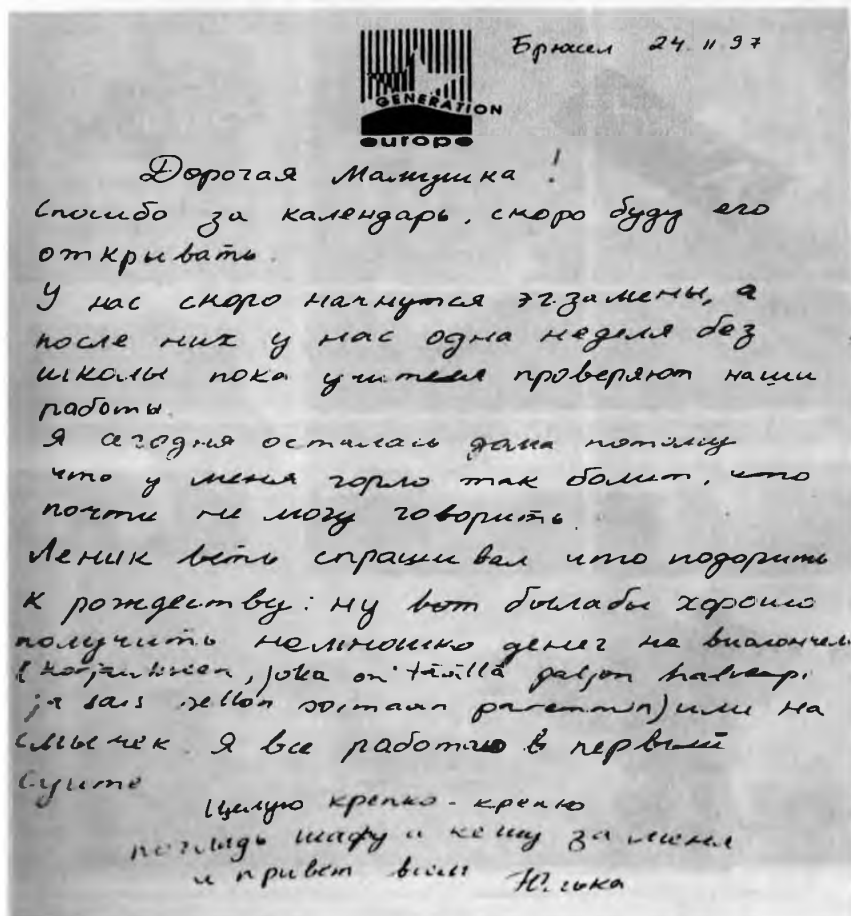 Брюсел 24. 11 97
GENERATION
europe
Дорогая Мамушка!
Спосибо за календарь, скоро буду его
открывать.
У нас скоро начнутся эгзамены, а
после них у нас одна неделя без
школы пока учителя проверяют наши
работы.
Я сегодня осталась дома потому
что у меня горло так болит, что
почти не могу говорить.
Леник веть спрашивал что подорить
к рождеству: ну вот былабы хорошо
получить немношко денег на виолончель
(korjauksien, joka on täällä paljon halvempi
ja sais sellon soimaan paremmin) или на
смычек. Я все работаю в первый
Суите
Целую крепко-крепко
погладь шафу и кешу за меня
и привет всем